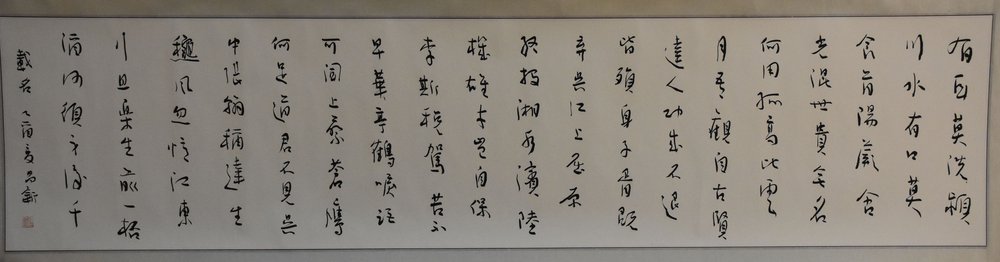 有耳莫洗潁
川水有口莫
食首陽蕨含
光混世貴無名
何用孤高比雲
月吾觀自古賢
達人功成不退
皆殞身子胥既
弃吳江上屈原
終投湘水濱陸
機雄才豈自保
李斯稅駕苦不
早華亭鶴唳詎
可聞上蔡蒼鷹
何足道君不見吳
中張翰稱達生
秋風忽憶江東
行且樂生前一杯
酒何須身後千
載名 乙酉夏